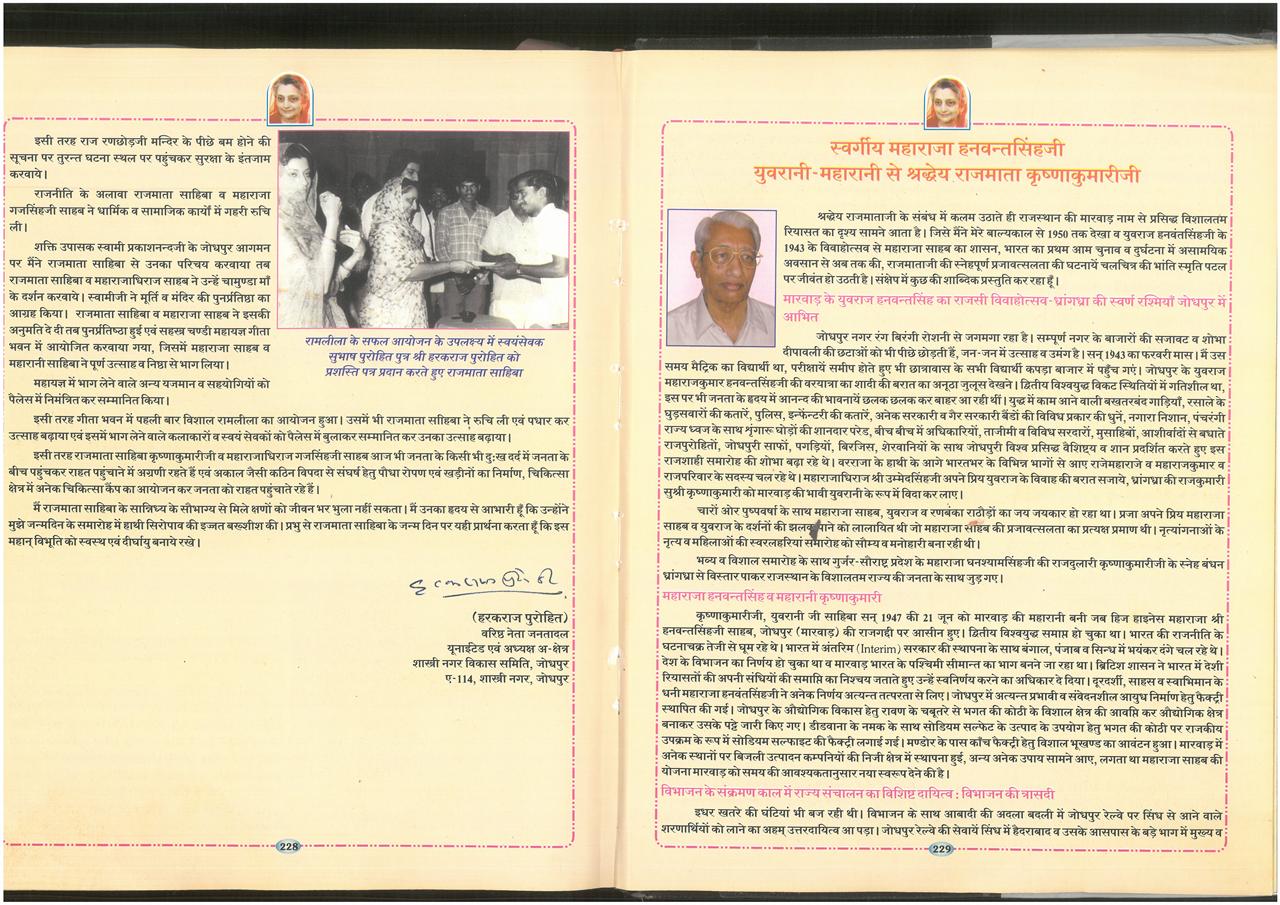 इसी तरह राज रणछोड़जी मन्दिर के पीछे बम होने की
सूचना पर तुरन्त घटना स्थल पर पहुंचकर सुरक्षा के इंतजाम
करवाये।
राजनीति के अलावा राजमाता साहिबा व महाराजा
गजसिंहजी साहब ने धार्मिक व सामाजिक कार्यों में गहरी रुचि
ली।
शक्ति उपासक स्वामी प्रकाशनन्दजी के जोधपुर आगमन
पर मैंने राजमाता साहिबा से उनका परिचय करवाया तब
राजमाता साहिबा व महाराजाधिराज साहब ने उन्हें चामुण्डा माँ
के दर्शन करवाये। स्वामीजी ने मूर्ति व मंदिर की पुनर्प्रतिष्ठा का
आग्रह किया। राजमाता साहिबा व महाराजा साहब ने इसकी
अनुमति दे दी तब पुनर्प्रतिष्ठा हुई एवं सहस्र चण्डी महायज्ञ गीता
भवन में आयोजित करवाया गया, जिसमें महाराजा साहब व
महारानी साहिबा ने पूर्ण उत्साह व निष्ठा से भाग लिया।
महायज्ञ में भाग लेने वाले अन्य यजमान व सहयोगियों को
पैलेस में निमंत्रित कर सम्मानित किया।
रामलीला के सफल आयोजन के उपलक्ष्य में स्वयंसेवक
सुभाष पुरोहित पुत्र श्री हरकराज पुरोहित को
प्रशस्ति पत्र प्रदान करते हुए राजमाता साहिबा
इसी तरह गीता भवन में पहली बार विशाल रामलीला का आयोजन हुआ। उसमें भी राजमाता साहिबा ने रुचि ली एवं पधार कर
उत्साह बढ़ाया एवं इसमें भाग लेने वाले कलाकारों व स्वयं सेवकों को पैलेस में बुलाकर सम्मानित कर उनका उत्साह बढ़ाया।
इसी तरह राजमाता साहिबा कृष्णाकुमारीजी व महाराजाधिराज गजसिंहजी साहब आज भी जनता के किसी भी दु:ख दर्द में जनता के
बीच पहुंचकर राहत पहुंचाने में अग्रणी रहते हैं एवं अकाल जैसी कठिन विपदा से संघर्ष हेतु पौधा रोपण एवं खड़ीनों का निर्माण, चिकित्सा
क्षेत्र में अनेक चिकित्सा कैंप का आयोजन कर जनता को राहत पहुंचाते रहे हैं।
मैं राजमाता साहिबा के सान्निध्य के सौभाग्य से मिले क्षणों को जीवन भर भुला नहीं सकता। मैं उनका हृदय से आभारी हूँ कि उन्होंने
मुझे जन्मदिन के समारोह में हाथी सिरोपाव की इज्जत बख्शीश की। प्रभु से राजमाता साहिबा के जन्म दिन पर यही प्रार्थना करता हूँ कि इस
महान् विभूति को स्वस्थ एवं दीर्घायु बनाये रखे।
(हरकराज पुरोहित)
वरिष्ठ नेता जनतादल
यूनाईटेड एवं अध्यक्ष अ-क्षेत्र
शास्त्री नगर विकास समिति, जोधपुर
ए-114, शास्त्री नगर, जोधपुर
228
स्वर्गीय महाराजा हनवन्तसिंहजी
युवरानी-महारानी से श्रद्धेय राजमाता कृष्णाकुमारीजी
श्रद्धेय राजमाताजी के संबंध में कलम उठाते ही राजस्थान की मारवाड़ नाम से प्रसिद्ध विशालतम
रियासत का दृश्य सामने आता है। जिसे मैंने मेरे बाल्यकाल से 1950 तक देखा व युवराज हनवंतसिंहजी के
1943 के विवाहोत्सव से महाराजा साहब का शासन, भारत का प्रथम आम चुनाव व दुर्घटना में असामयिक
अवसान से अब तक की, राजमाताजी की स्नेहपूर्ण प्रजावत्सलता की घटनायें चलचित्र की भांति स्मृति पटल
पर जीवंत हो उठती है। संक्षेप में कुछ की शाब्दिक प्रस्तुति कर रहा हूँ।
मारवाड़ के युवराज हनवन्तसिंह का राजसी विवाहोत्सव-ध्रांगध्रा की स्वर्ण रश्मियाँ जोधपुर में
आभित
जोधपुर नगर रंग बिरंगी रोशनी से जगमगा रहा है। सम्पूर्ण नगर के बाजारों की सजावट व शोभा
दीपावली की छटाओं को भी पीछे छोड़ती हैं, जन-जन में उत्साह व उमंग है। सन् 1943 का फरवरी मास। मैं उस
समय मैट्रिक का विद्यार्थी था, परीक्षायें समीप होते हुए भी छात्रावास के सभी विद्यार्थी कपड़ा बाजार में पहुँच गएं। जोधपुर के युवराज
महाराजकुमार हनवन्तसिंहजी की वरयात्रा का शादी की बरात का अनूठा जुलूस देखने। द्वितीय विश्वयुद्ध विकट स्थितियों में गतिशील था,
इस पर भी जनता के हृदय में आनन्द की भावनायें छलक छलक कर बाहर आ रही थीं। युद्ध में काम आने वाली बख्तरबंद गाड़ियाँ, रसाले के
घुड़सवारों की कतारें, पुलिस, इन्फेंन्टरी की कतारें, अनेक सरकारी व गैर सरकारी बैंडों की विविध प्रकार की धुनें, नगारा निशान, पंचरंगी
राज्य ध्वज के साथ शृंगारू घोड़ों की शानदार परेड, बीच बीच में अधिकारियों, ताजीमी व विविध सरदारों, मुसाहिबों, आशीर्वादों से बधाते
राजपुरोहितों, जोधपुरी साफों, पगड़ियों, बिरजिस, शेरवानियों के साथ जोधपुरी विश्व प्रसिद्ध वैशिष्ट्य व शान प्रदर्शित करते हुए इस
राजशाही समारोह की शोभा बढ़ा रहे थे। वरराजा के हाथी के आगे भारतभर के विभिन्न भागों से आए राजेमहाराजे व महाराजकुमार व
राजपरिवार के सदस्य चल रहे थे। महाराजाधिराज श्री उम्मेदसिंहजी अपने प्रिय युवराज के विवाह की बरात सजाये, ध्रांगध्रा की राजकुमारी
सुश्री कृष्णाकुमारी को मारवाड़ की भावी युवरानी के रूप में विदा कर लाए।
चारों ओर पुष्पवर्षा के साथ महाराजा साहब, युवराज व रणबंका राठौड़ों का जय जयकार हो रहा था। प्रजा अपने प्रिय महाराजा
साहब व युवराज के दर्शनों की झलक पाने को लालायित थी जो महाराजा साहब की प्रजावत्सलता का प्रत्यक्ष प्रमाण थी। नृत्यांगनाओं के
नृत्य व महिलाओं की स्वरलहरियां समारोह को सौम्य व मनोहारी बना रही थी।
भव्य व विशाल समारोह के साथ गुर्जर-सौराष्ट्र प्रदेश के महाराजा घनश्यामसिंहजी की राजदुलारी कृष्णाकुमारीजी के स्नेह बंधन
ध्रांगध्रा से विस्तार पाकर राजस्थान के विशालतम राज्य की जनता के साथ जुड़ गए।
महाराजा हनवन्तसिंह व महारानी कृष्णाकुमारी
कृष्णाकुमारीजी, युवरानी जी साहिबा सन् 1947 की 21 जून को मारवाड़ की महारानी बनी जब हिज हाइनेस महाराजा श्री
हनवन्तसिंहजी साहब, जोधपुर (मारवाड़) की राजगद्दी पर आसीन हुए। द्वितीय विश्वयुद्ध समाप्त हो चुका था। भारत की राजनीति के
घटनाचक्र तेजी से घूम रहे थे। भारत में अंतरिम (Interim) सरकार की स्थापना के साथ बंगाल, पंजाब व सिन्ध में भयंकर दंगे चल रहे थे।
देश के विभाजन का निर्णय हो चुका था व मारवाड़ भारत के पश्चिमी सीमान्त का भाग बनने जा रहा था। ब्रिटिश शासन ने भारत में देशी
रियासतों की अपनी संधियों की समाप्ति का निश्चय जताते हुए उन्हें स्वनिर्णय करने का अधिकार दे दिया। दूरदर्शी, साहस व स्वाभिमान के
धनी महाराजा हनवंतसिंहजी ने अनेक निर्णय अत्यन्त तत्परता से लिए। जोधपुर में अत्यन्त प्रभावी व संवेदनशील आयुध निर्माण हेतु फैक्ट्री
स्थापित की गई। जोधपुर के औद्योगिक विकास हेतु रावण के चबूतरे से भगत की कोठी के विशाल क्षेत्र की आवाप्ति कर औद्योगिक क्षेत्र
बनाकर उसके पट्टे जारी किए गए। डीडवाना के नमक के साथ सोडियम सल्फेट के उत्पाद के उपयोग हेतु भगत की कोठी पर राजकीय
उपक्रम के रूप में सोडियम सल्फाइट की फैक्ट्री लगाई गई। मण्डोर के पास काँच फैक्ट्री हेतु विशाल भूखण्ड का आवंटन हुआ। मारवाड़ में
अनेक स्थानों पर बिजली उत्पादन कम्पनियों की निजी क्षेत्र में स्थापना हुई, अन्य अनेक उपाय सामने आए, लगता था महाराजा साहब की
योजना मारवाड़ को समय की आवश्यकतानुसार नया स्वरूप देने की है।
विभाजन के संक्रमण काल में राज्य संचालन का विशिष्ट दायित्व : विभाजन की त्रासदी
इधर खतरे की घंटियां भी बज रही थी। विभाजन के साथ आबादी की अदला बदली में जोधपुर रेल्वे पर सिंध से आने वाले
शरणार्थियों को लाने का अहम् उत्तरदायित्व आ पड़ा। जोधपुर रेल्वे की सेवायें सिंध में हैदराबाद व उसके आसपास के बड़े भाग में मुख्य व
229